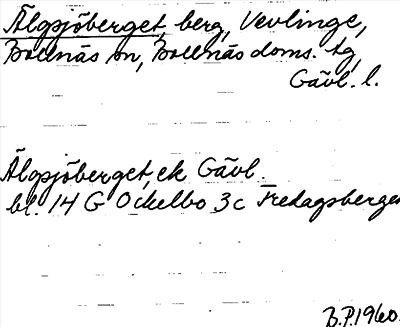 Älgsjöberget, berg, Vevlinge,
Bollnäs sn, Bollnäs doms. tg,
Gävl. l.
Älgsjöberget, ek Gävl.
bl. 14 G Ockelbo 3c Fredagsberget
B.P. 1960.